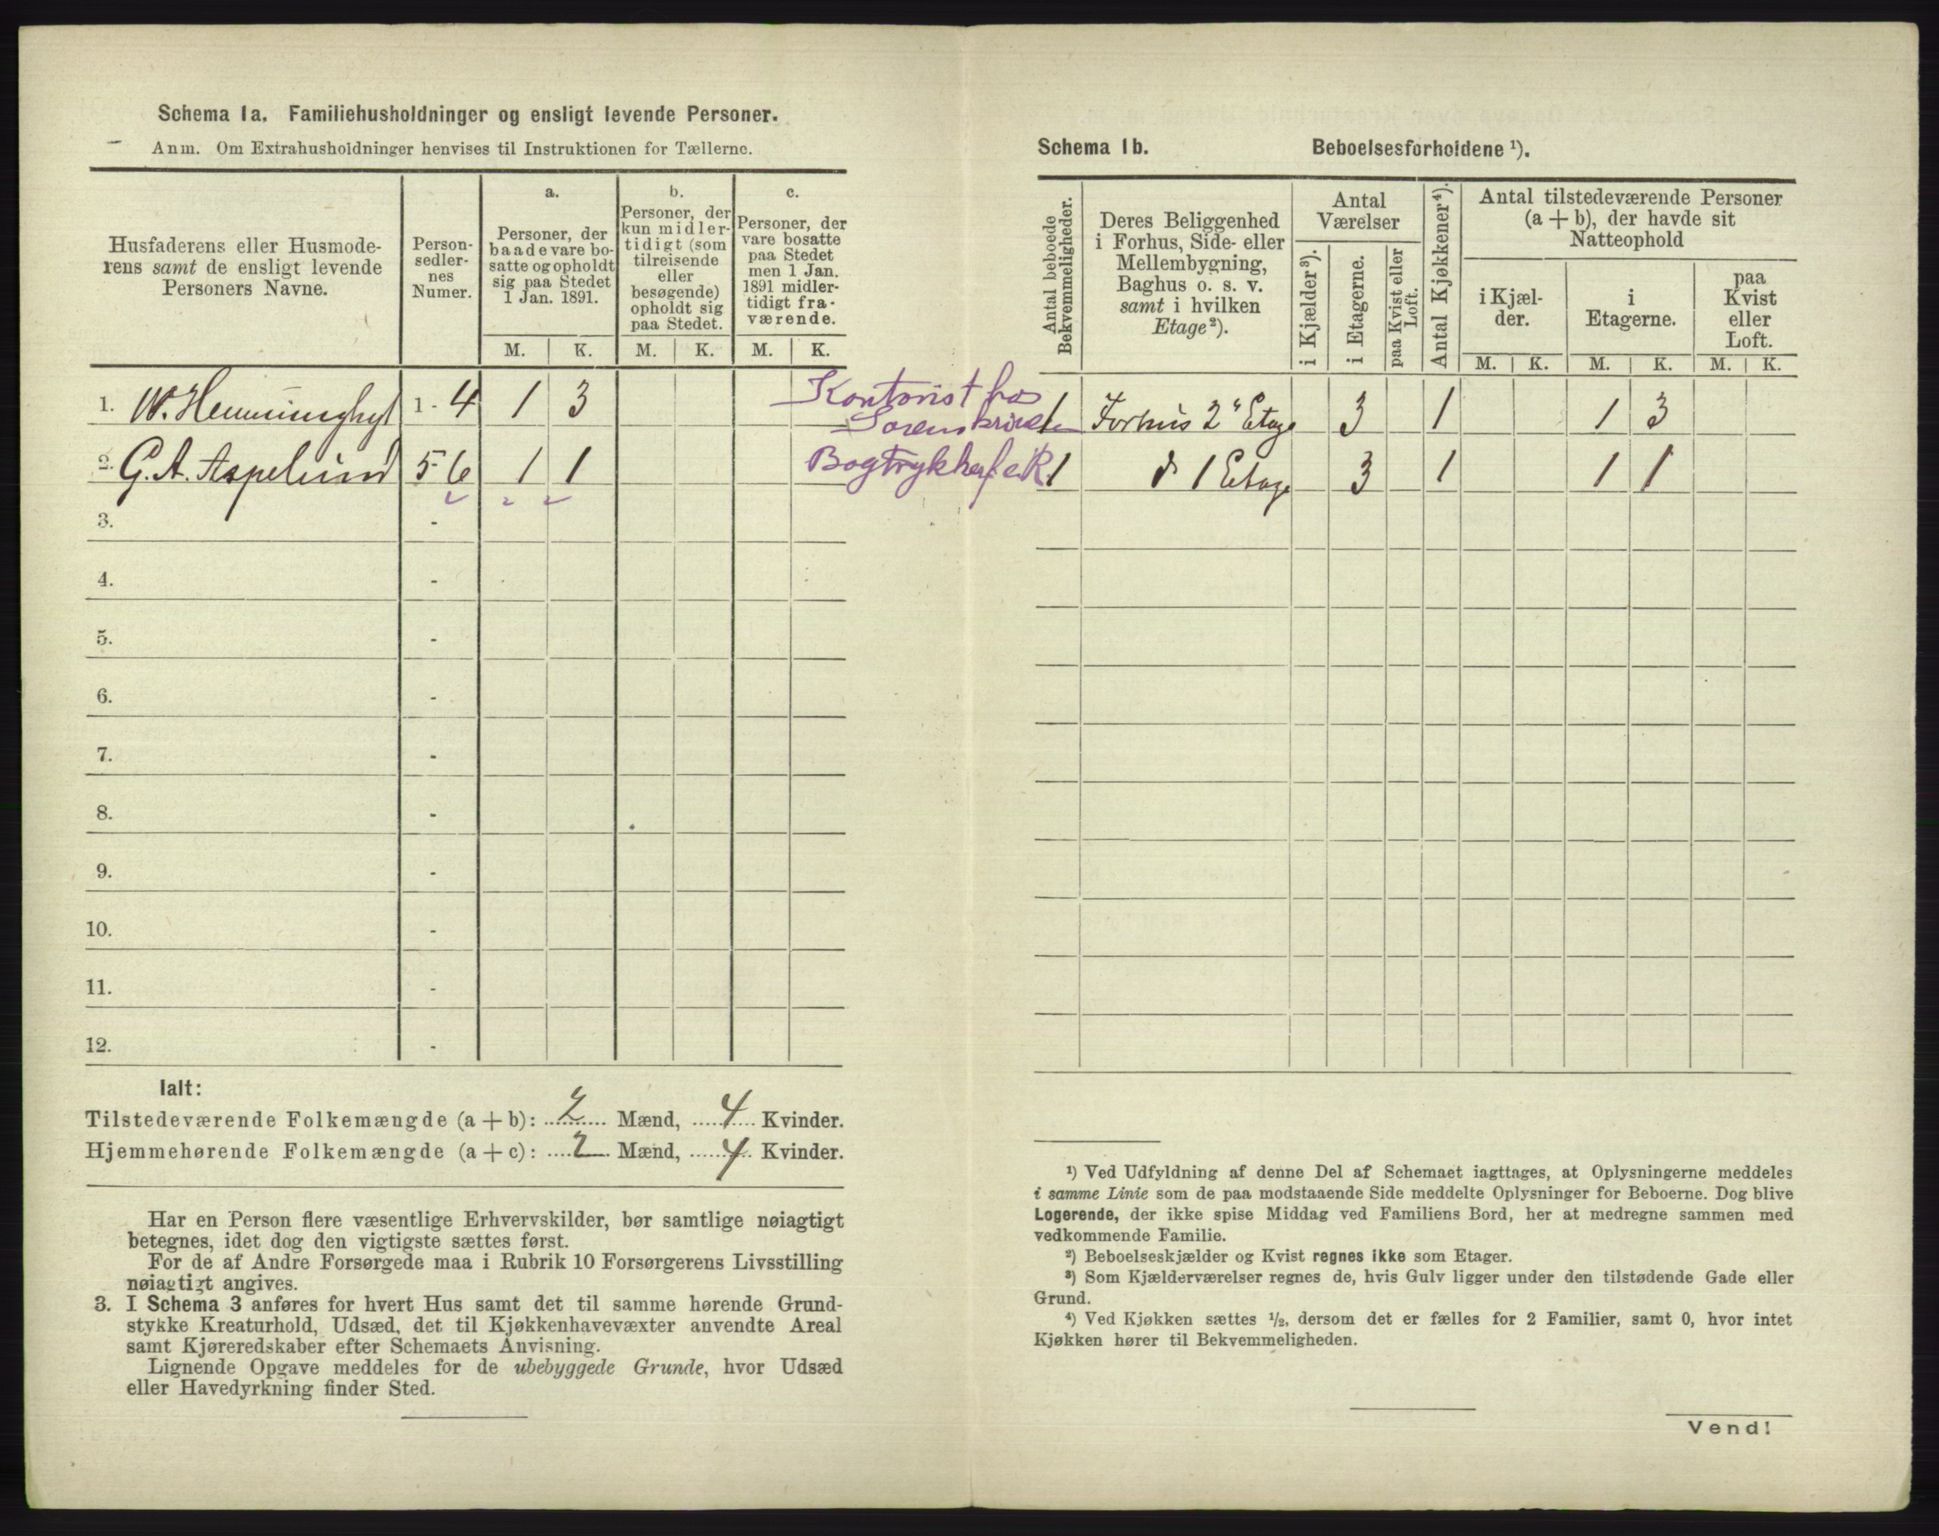 Schema 1a. Familiehusholdninger og ensligt levende Personer.
Anm. Om Extrahusholdninger henvises til Instruktionen for Tællerne.
Husfaderens eller Husmode-
rens samt de ensligt levende
Personers Navne.
Person-
sedler-
nes
Numer.
a.
Personer, der
baade vare bo-
satte og opholdt
sig paa Stedet
1 Jan. 1891.
b.
Personer, der
kun midler-
tidigt (som
tilreisende
eller
besøgende)
opholdt sig
paa Stedet.
c.
Personer, der
vare bosatte
paa Stedet
men 1 Jan.
1891 midler-
tidigt fra-
værende.
M. K. M. K. M. K.
1. 1 - 4 1 3
Kontorist hos
2. G. A. Aspelund 5 - 6 1 1
3. -
4. -
5. -
6. -
7. -
8. -
9. -
10. -
11. -
12. -
Ialt:
Tilstedeværende Folkemængde (a + b): 2 Mænd, 4 Kvinder.
Hjemmehørende Folkemængde (a + c): 2 Mænd, 4 Kvinder.
Har en Person flere væsentlige Erhvervskilder, bør samtlige nøiagtigt
betegnes, idet dog den vigtigste sættes først.
For de af Andre Forsørgede maa i Rubrik 10 Forsørgerens Livsstilling
nøiagtigt angives.
3. I Schema 3 anføres for hvert Hus samt det til samme hørende Grund-
stykke Kreaturhold, Udsæd, det til Kjøkkenhavevæxter anvendte Areal
samt Kjøreredskaber efter Schemaets Anvisning.
Lignende Opgave meddeles for de ubebyggede Grunde, hvor Udsæd
eller Havedyrkning finder Sted.
Schema 1b. Beboelsesforholdene ¹).
Antal beboede
Bekvemmeligheder.
Deres Beliggenhed
i Forhus, Side- eller
Mellembygning,
Baghus o. s. v.
samt i hvilken
Etage ²).
Antal
Værelser
i Kjælder ³).
i Etagerne.
paa Kvist eller
Loft.
Antal Kjøkkener ⁴).
Antal tilstedeværende Personer
(a + b), der havde sit
Natteophold
i Kjæl-
der.
i
Etagerne.
paa
Kvist
eller
Loft.
M. K. M. K. M. K.
1 Forhus 2" Etage 3 1 1 3
1 d 1 Etage 3 1 1 1
¹) Ved Udfyldning af denne Del af Schemaet iagttages, at Oplysningerne meddeles
i samme Linie som de paa modstaaende Side meddelte Oplysninger for Beboerne. Dog blive
Logerende, der ikke spise Middag ved Familiens Bord, her at medregne sammen med
vedkommende Familie.
²) Beboelseskjælder og Kvist regnes ikke som Etager.
³) Som Kjælderværelser regnes de, hvis Gulv ligger under den tilstødende Gade eller
Grund.
⁴) Ved Kjøkken sættes ½, dersom det er fælles for 2 Familier, samt 0, hvor intet
Kjøkken hører til Bekvemmeligheden.
Vend!